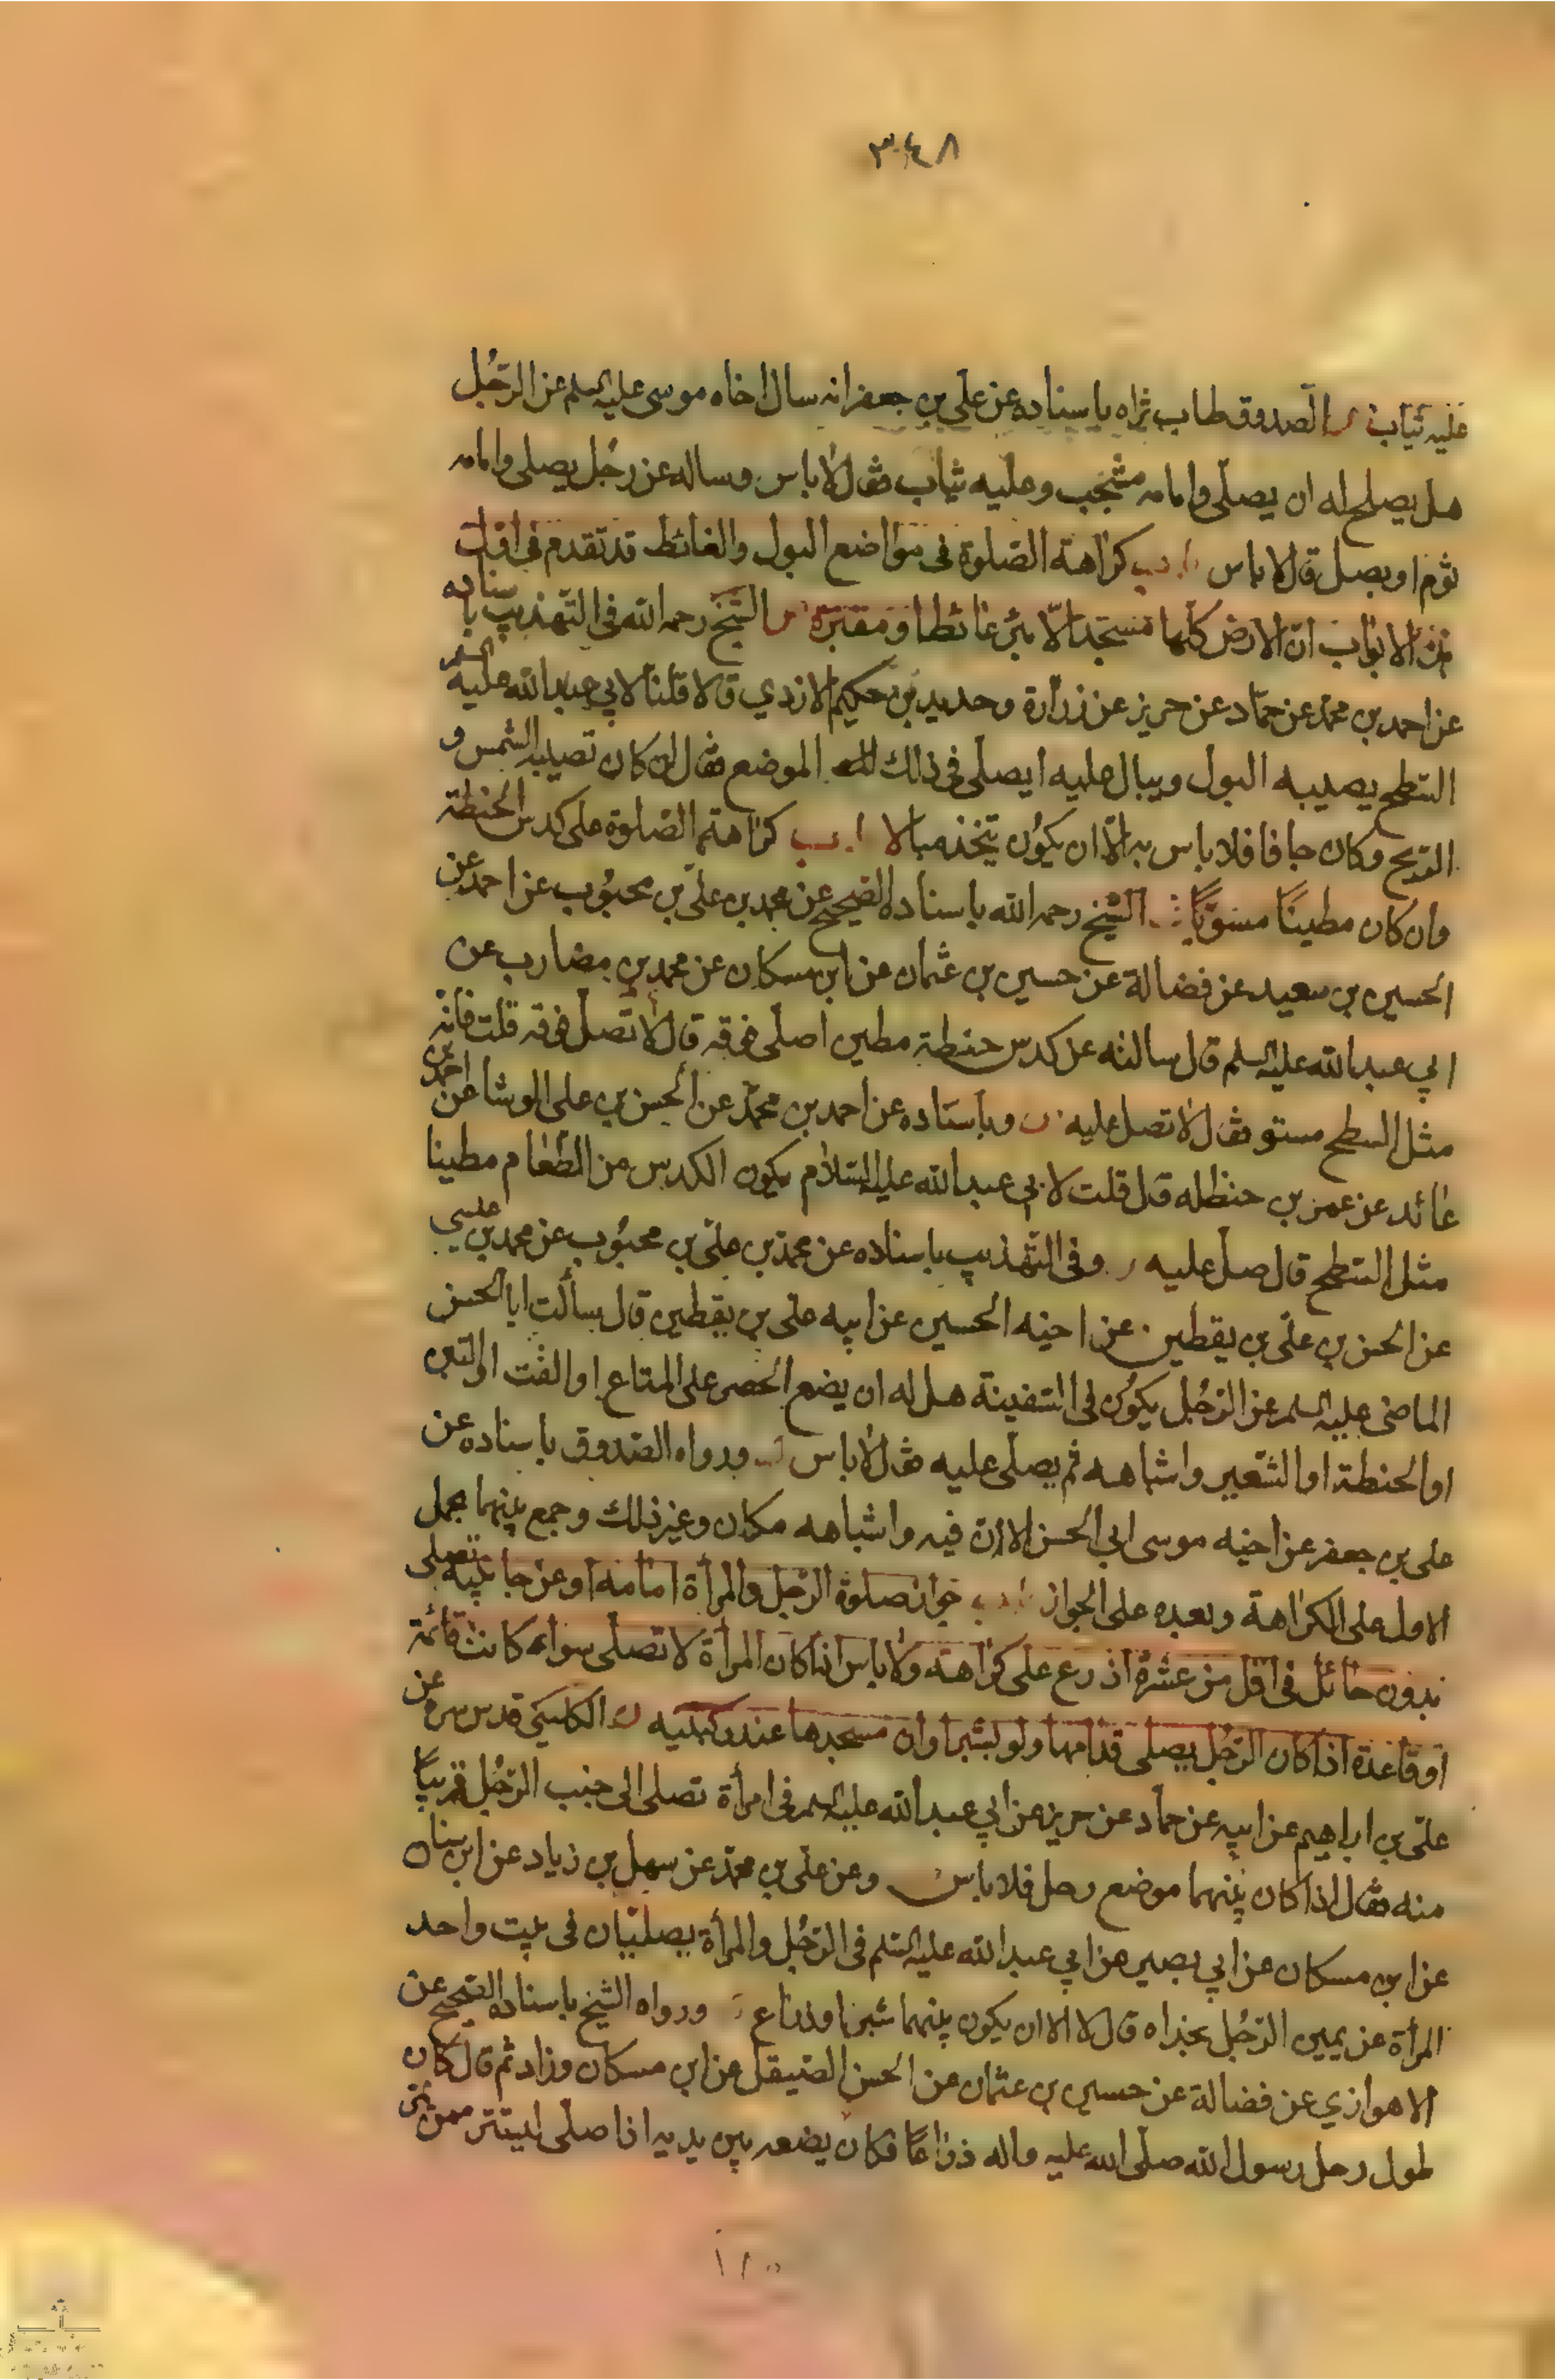 ٣٤٨
عليه ثياب الصدوق طاب ثراه باسناده عن علي بن جعفر انه سال اخاه موسى عليه السلم عن الرّجُل
هل يصلح له ان يصلّى وامامه مشجب وعليه ثياب فقال لا باس وساله عن رجُل يصلى وامامه
ثوم او بصل قال لا باس باب كراهة الصّلوة فى مواضع البول والغائط قد تقدم فى
الابواب انّ الارض كلّها مسجد الّا بئر غائط او مقبرة الشّيخ رحمه الله فى التّهذيب باسناده
عن احمد بن محمّد عن حمّاد عن حريز عن زرارة وحديد بن حكيم الازدي قالا قلنا لابي عبد الله عليه السلم
السّطح يصيبه البول ويبال عليه ايصلّى فى ذلك الموضع فقال ان كان تصيبه الشّمس و
الرّيح وكان جافا فلا باس به الّا ان يكوُن يتّخذ مبالا باب كراهة الصّلوة على كدس الحنطة
وان كان مطينًا مسوّيًا الشّيخ رحمه الله باسناده الصّحيح عن محمد بن علىّ بن محبُوب عن احمد عن
الحسين بن سعيد عن فضالة عن حسين بن عثمان عن ابن مسكان عن محمد بن مضارب عن
ابي عبد الله عليه السلم قال سالته عن كدس حنطة مطين اصلّى فوقه قال لا تصلّ فوقه قلت فانّه
مثل السطح مستو فقال لا تصل عليه وباسناده عن احمد بن محمّد عن الحسن بن على الوشا عن احمد بن
عائذ عن عمر بن حنظله قال قلت لابي عبد الله عليه السّلام يكون الكدس من الطّعام مطينا
مثل السّطح قال صلّ عليه وفى التّهذيب باسناده عن محمّد بن علىّ بن محبُوب عن محمد بن عيسي
عن الحسن بن علىّ بن يقطين عن اخيه الحسين عن ابيه على بن يقطين قال سألت ابا الحسن
الماضى عليه السلم عن الرّجُل يكوُن فى السّفينة هل له ان يضع الحصر على المتاع او القت او التبن
او الحنطة او الشّعير واشباهه ثم يصلّى عليه فقال لا باس ورواه الصّدوق باسناده عن
على بن جعفر عن اخيه موسى ابي الحسن الا ان فيه واشباهه مكان وغير ذلك وجمع بينهما بحمل
الاول على الكراهة وبعده على الجواز باب جواز صلوة الرّجل والمرأة امامه او عن جانبيه تصلى
بدون حائل فى اقل من عشرة اذرع على كراهة ولا باس اذا كان المرأة لا تصلّى سواء كانت قائمة
او قاعدة اذا كان الرّجل يصلى قدّامها ولو بشبر او ان مسجدها عند ركبتيه الكلينيّ قدس سره عن
علىّ بن ابراهيم عن ابيه عن حماد عن حريز عن ابي عبد الله عليه السلم فى امرأة تصلى الى جنب الرّجُل قريبًا
منه فقال اذا كان بينهما موضع رحل فلا باس وعن علىّ بن محمّد عن سهل بن زياد عن ابن سنان
عن ابن مسكان عن ابي بصير عن ابي عبد الله عليه السّلم فى الرّجُل والمرأة يصليان فى بيت واحد
المرأة عن يمين الرّجُل بحذاه قال لا الا ان يكون بينهما شبر او ذراع ورواه الشّيخ باسناده الصّحيح عن
الاهوازي عن فضالة عن حسين بن عثمان عن الحسن الصّيقل عن ابن مسكان وزاد ثم قال كان
طول رحل رسول الله صلّى الله عليه واله ذراعًا فكان يضعه بين يديه اذا صلّى ليستتر ممن